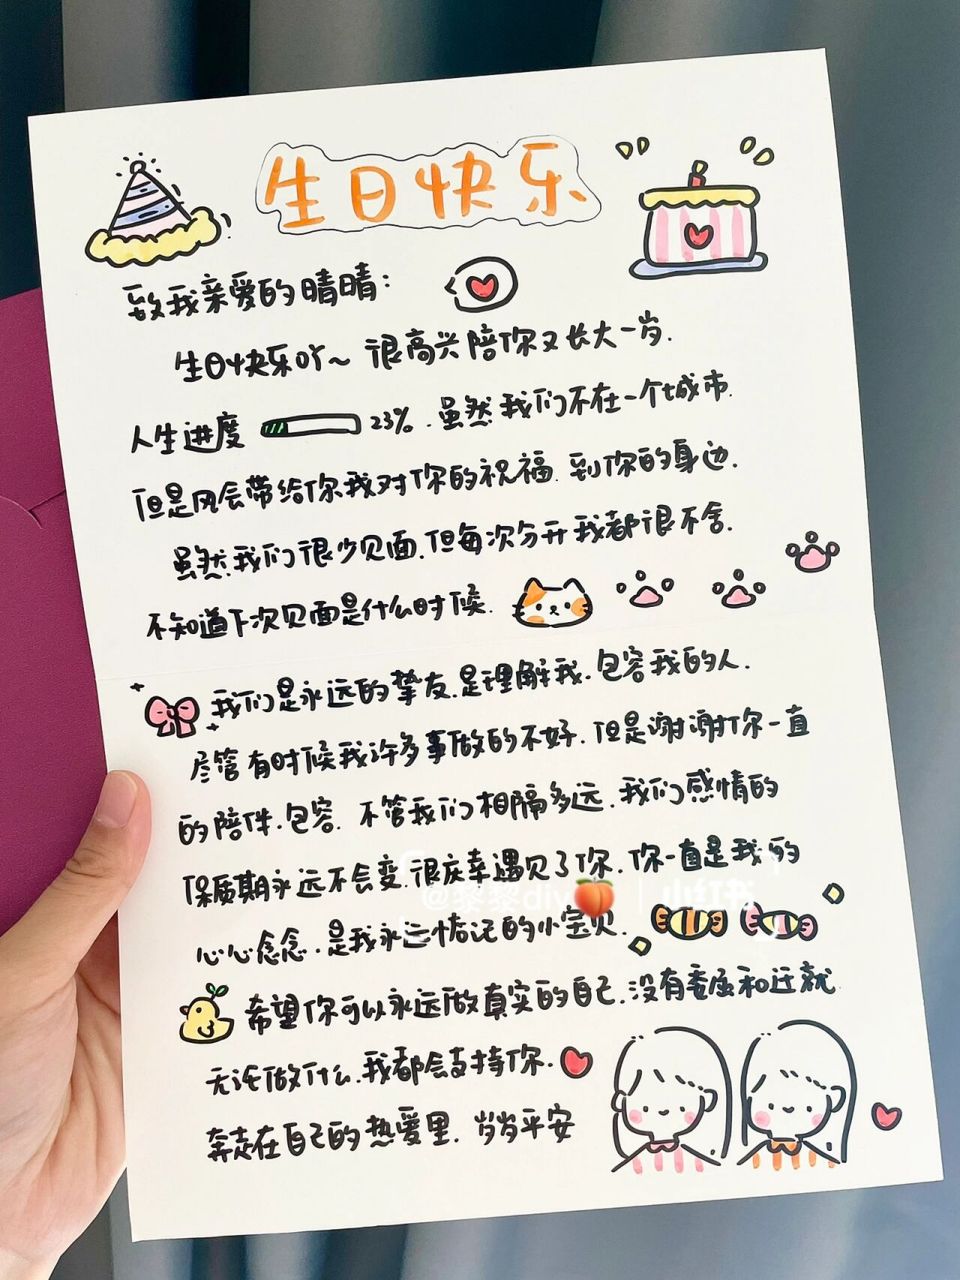 生日快乐
致我亲爱的晴晴:
生日快乐吖~ 很高兴陪你又长大一岁.
人生进度 23%. 虽然我们不在一个城市.
但是风会带给你我对你的祝福. 到你的身边.
虽然我们很少见面.但每次分开我都很不舍.
不知道下次见面是什么时候.
我们是永远的挚友.是理解我.包容我的人.
尽管有时候我许多事做的不好.但是谢谢你一直
的陪伴.包容. 不管我们相隔多远.我们感情的
保质期永远不会变.很庆幸遇见了你.你一直是我的
心心念念.是我永远惦记的小宝贝.
@黎黎diy 小红书
希望你可以永远做真实的自己.没有委屈和迁就
无论做什么.我都会支持你.
奔走在自己的热爱里. 岁岁平安